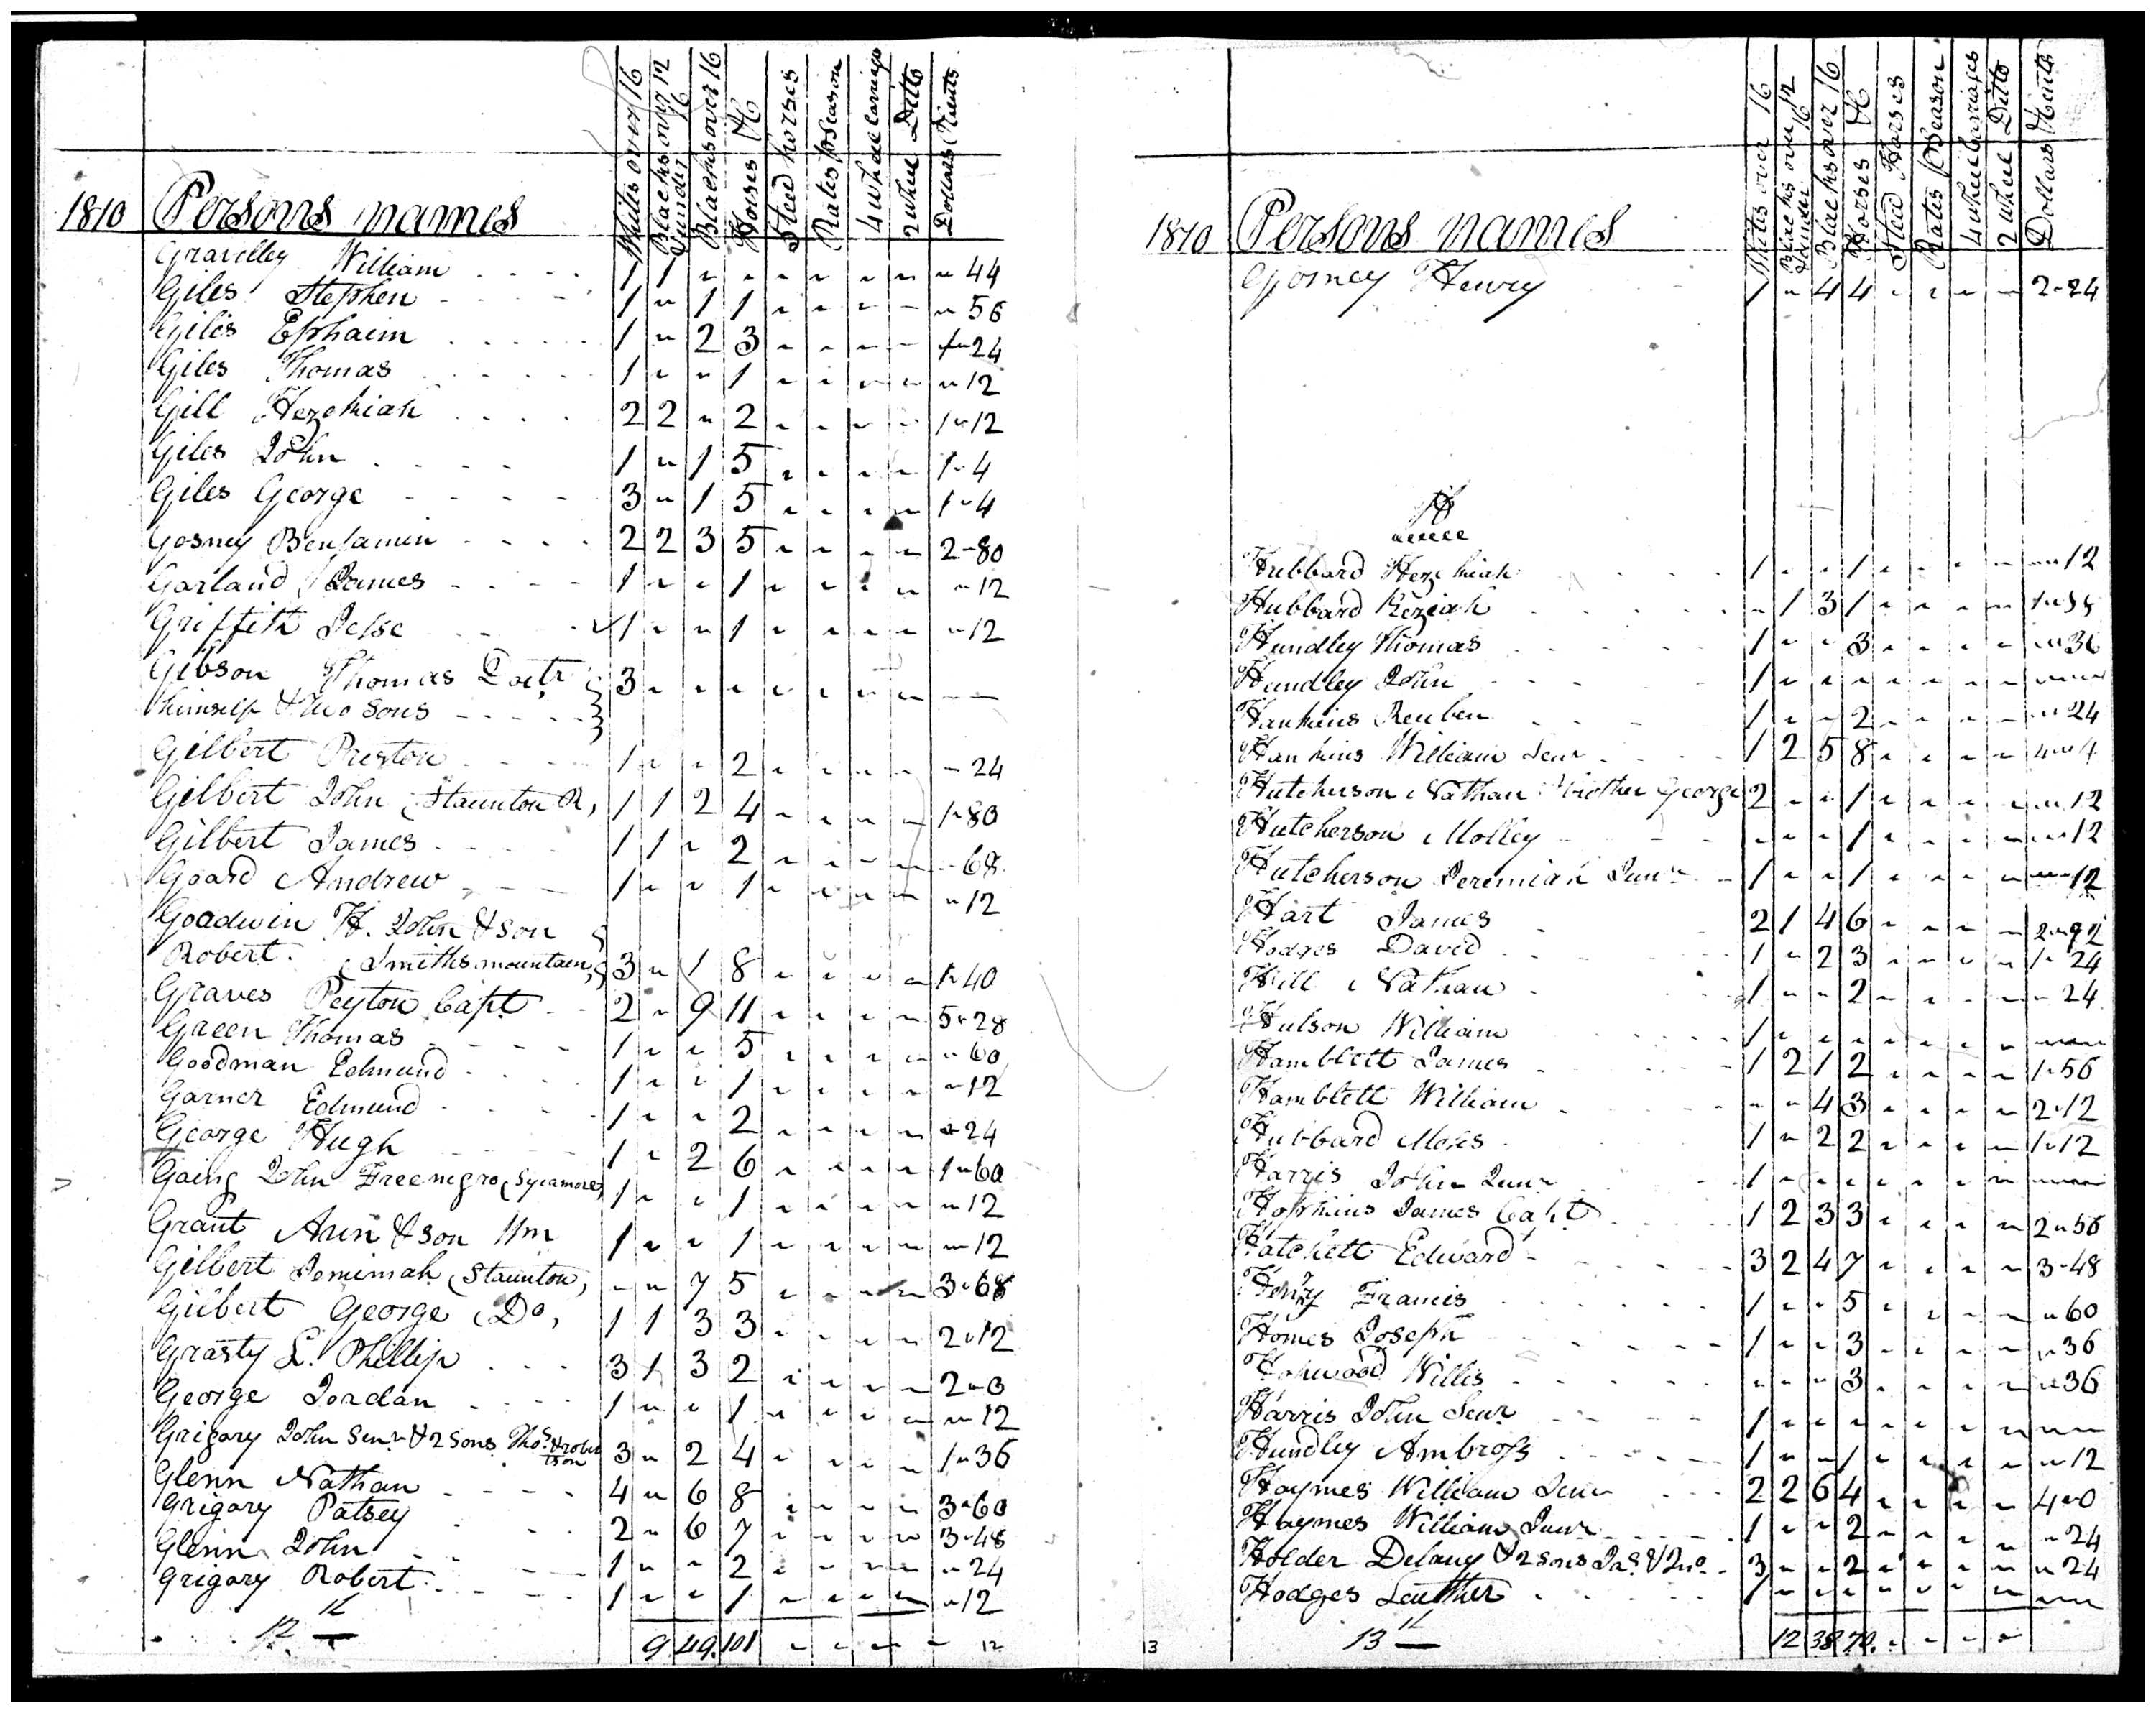 1810 Persons names Whites over 16 Blacks over 12 & under 16 Blacks over 16 Horses &c Stud horses Rates pr season 4 wheel carriages 2 wheel Ditto Dollars & Cents
Gravelley William - - - - 1 1 " " " " " " " 44
Giles Stephen - - - - 1 " 1 1 " " " " " 56
Giles Ephaim - - - - 1 " 2 3 " " " " 1 " 24
Giles Thomas - - - - 1 " " 1 " " " " " 12
Gill Hezekiah - - - - 2 2 " 2 " " " " 1 " 12
Giles John - - - - 1 " 1 5 " " " " 1 " 4
Giles George - - - - 3 " 1 5 " " " " 1 " 4
Gosney Benjamin - - - - 2 2 3 5 " " " " 2 " 80
Garland James - - - 1 " " 1 " " " " " 12
Griffith Jesse - - 1 " " 1 " " " " " 12
Gibson Thomas 3 " " " " " " " "
himself & two sons - - - -
Gilbert Preston - - - - 1 " " 2 " " " " " 24
Gilbert John (Staunton R, 1 1 2 4 " " " " 1 " 80
Gilbert James - - - - 1 1 " 2 " " " " " 68
Goard Andrew - - - 1 " " 1 " " " " " 12
Goadwin H. John & son
Robert. (Smiths mountain, 3 " 1 8 " " " " 1 " 40
Graves Peyton Capt. - - 2 " 9 11 " " " " 5 " 28
Green Thomas - - - - 1 " " 5 " " " " " 60
Goodman Edmund - - - - 1 " " 1 " " " " " 12
Garner Edmund - - - - 1 " " 2 " " " " " 24
George Hugh 1 " 2 6 " " " " 1 " 60
Going John Freenegro (Sycamore) 1 " " 1 " " " " " 12
Grant Arin & son Wm 1 " " 1 " " " " " 12
Gilbert Jemimah (Staunton, " " 7 5 " " " " 3 " 68
Gilbert George (Do, 1 1 3 3 " " " " 2 " 12
Grasty L. Phillip - - - 3 1 3 2 " " " " 2 " 0
George Jordan - - - - 1 " " 1 " " " " " 12
Grigory John Senr & 2 sons Thos & robertson 3 " 2 4 " " " " 1 " 36
Glenn Nathan - - - - 4 " 6 8 " " " " 3 " 60
Grigory Patsey - - 2 " 6 7 " " " " 3 " 48
Glenn John - - - 1 " " 2 " " " " " 24
Grigory Robert - - - - 1 " " 1 " " " " " 12
12 9 49 101 " " " " 12
1810 Persons names Whites over 16 Blacks over 12 & under 16 Blacks over 16 Horses &c Stud Horses Rates pr Season 4 wheel carriages 2 wheel Ditto Dollars & Cents
Gosney Henry 1 " 4 4 " " " " 2 " 24
H
Hubbard Hezekiah 1 " " 1 " " " " " 12
Hubbard Keziah " 1 3 1 " " " "
Hundley Thomas 1 " " 3 " " " " " 36
Hundley John 1 " " " " " " " "
Hankins Reuben 1 " " 2 " " " " " 24
Hankins William Senr 1 2 5 8 " " " " 4 " 4
Hutcherson Nathan & brother George 2 " " 1 " " " " " 12
Hutcherson Molley " " " 1 " " " " " 12
Hutcherson Jeremiah Junr 1 " " 1 " " " " " 12
Hart James 2 1 4 6 " " " " 2 " 92
Hodges David 1 " 2 3 " " " " 1 " 24
Hill Nathan 1 " " 2 " " " " " 24
Hulson William 1 " " " " " " " "
Hamblett James 1 2 1 2 " " " " 1 " 56
Hamblett William " " 4 3 " " " " 2 " 12
Hubbard Moses 1 " 2 2 " " " " 1 " 12
Harris John Junr 1 " " " " " " " "
Hopkins James Capt 1 2 3 3 " " " " 2 " 56
Hatchett Edward 3 2 4 7 " " " " 3 " 48
Henry Francis 1 " " 5 " " " " " 60
Homes Joseph 1 " " 3 " " " " " 36
Willis " " " 3 " " " " " 36
Harris John Senr 1 " " " " " " " "
Hundley Ambross 1 " " 1 " " " " " 12
Haymes William Senr 2 2 6 4 " " " " 4 " 0
Haymes William Junr 1 " " 2 " " " " " 24
Holder Delany & 2 sons Jas & Jno 3 " " 2 " " " " " 24
Hodges Leuther 1 " " " " " " " "
13 13 12 38 70 " " " "